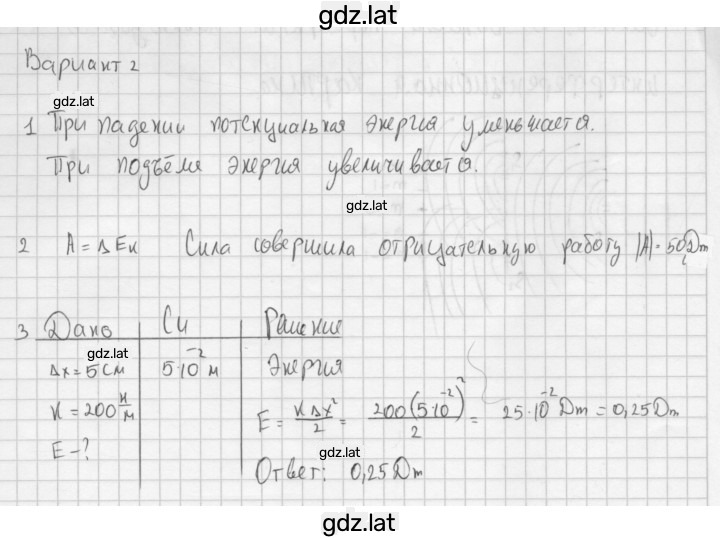 gdz.lat
Вариант 2
gdz.lat
1 При падении потенциальная энергия уменьшается.
При подъёме энергия увеличивается.
gdz.lat
2 A = ΔEк Сила совершила отрицательную работу |A| = 50Дж
3 Дано Си Решение
gdz.lat
Δx = 5 см 5·10⁻² м Энергия
K = 200 н/м E = KΔx²/2 = 200(5·10⁻²)²/2 = 25·10⁻² Дж = 0,25Дж
E - ?
Ответ: 0,25 Дж
gdz.lat